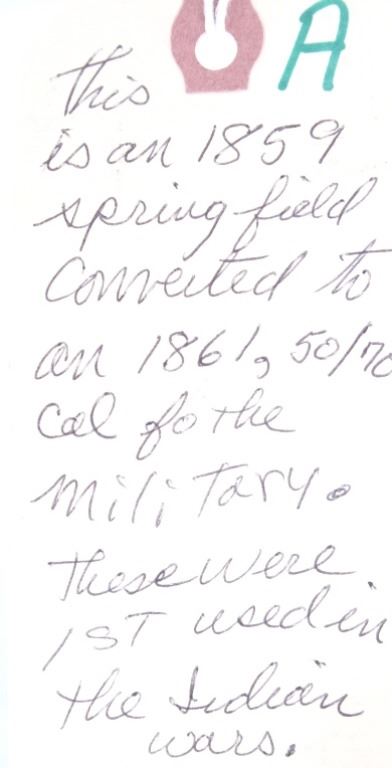 A
this
is an 1859
springfield
Converted to
an 1861, 50/70
Cal fo the
military.
These were
1ST used in
the Indian
wars.